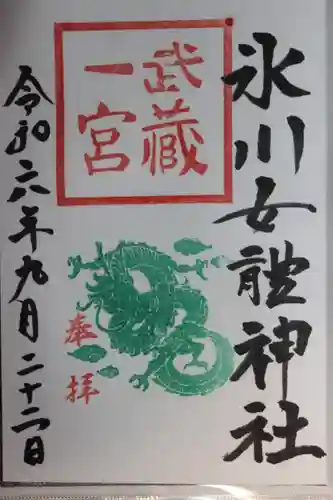 氷川女體神社
武蔵
一宮
奉拝
令和六年九月二十二日